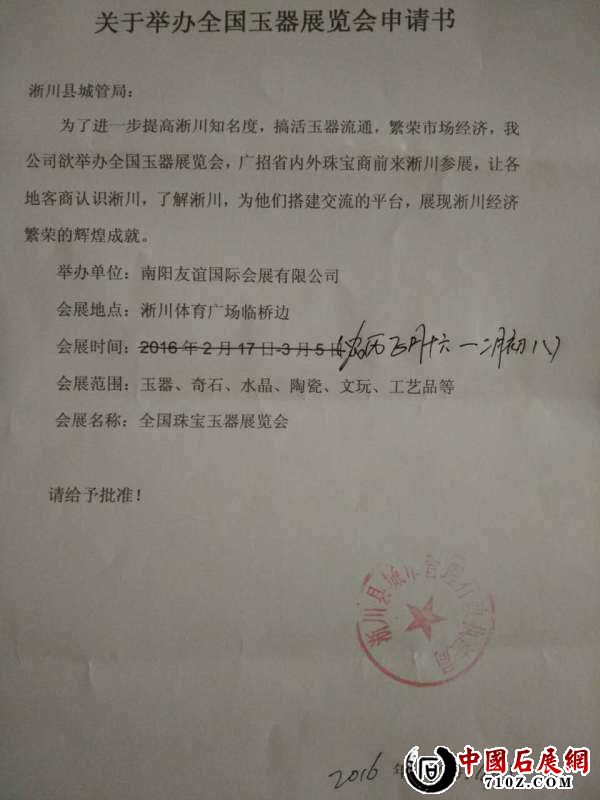 关于举办全国玉器展览会申请书
淅川县城管局：
为了进一步提高淅川知名度，搞活玉器流通，繁荣市场经济，我
公司欲举办全国玉器展览会，广招省内外珠宝商前来淅川参展，让各
地客商认识淅川，了解淅川，为他们搭建交流的平台，展现淅川经济
繁荣的辉煌成就。
举办单位：南阳友谊国际会展有限公司
会展地点：淅川体育广场临桥边
会展时间：2016年2月17日-3月5日（农历正月十六一二月初八）
会展范围：玉器、奇石、水晶、陶瓷、文玩、工艺品等
会展名称：全国珠宝玉器展览会
请给予批准！
淅川县城市管理行政执法局
2016 年
中國石展網
7102.COM